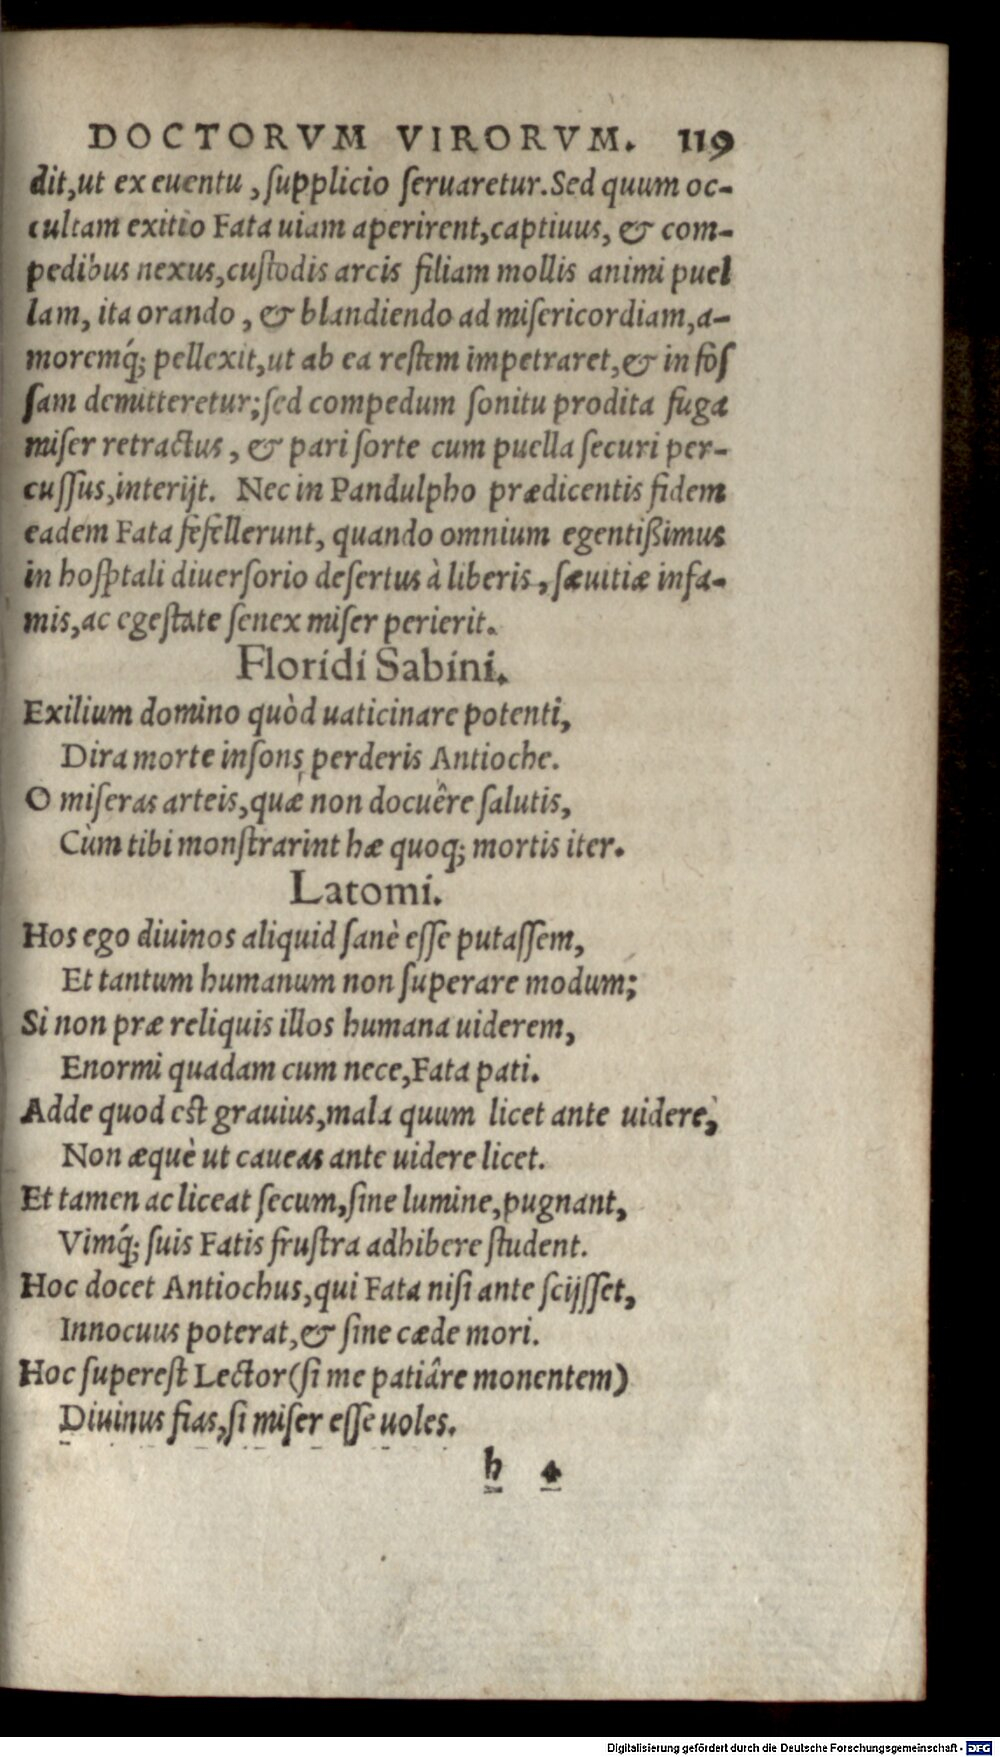 DOCTORVM VIRORVM. 119
dit,ut ex euentu, ſupplicio ſeruaretur. Sed quum oc-
cultam exitio Fata uiam aperirent, captiuus, & com-
pedibus nexus, cuſtodis arcis filiam mollis animi puel
lam, ita orando, & blandiendo ad miſericordiam, a-
moremq́; pellexit, ut ab ea reſtem impetraret, & in foſ
ſam demitteretur; ſed compedum ſonitu prodita fuga
miſer retractus, & pari ſorte cum puella ſecuri per-
cuſſus, interijt. Nec in Pandulpho prædicentis fidem
eadem Fata fefellerunt, quando omnium egentißimus
in hoſptali diuerſorio deſertus à liberis, ſæuitiæ infa-
mis, ac egeſtate ſenex miſer perierit.
Floridi Sabini.
Exilium domino quòd uaticinare potenti,
Dira morte inſons perderis Antioche.
O miſeras arteis, quæ non docuêre ſalutis,
Cùm tibi monſtrarint hæ quoq; mortis iter.
Latomi.
Hos ego diuinos aliquid ſanè eſſe putaſſem,
Et tantum humanum non ſuperare modum;
Si non præ reliquis illos humana uiderem,
Enormi quadam cum nece, Fata pati.
Adde quod eſt grauius, mala quum licet ante uidere,
Non æquè ut caueas ante uidere licet.
Et tamen ac liceat ſecum, ſine lumine, pugnant,
Vimq́; ſuis Fatis fruſtra adhibere ſtudent.
Hoc docet Antiochus, qui Fata niſi ante ſcijſſet,
Innocuus poterat, & ſine cæde mori.
Hoc ſupereſt Lector (ſi me patiâre monentem)
Diuinus fias, ſi miſer eſſe uoles.
h 4
Digitalisierung gefördert durch die Deutsche Forschungsgemeinschaft - DFG